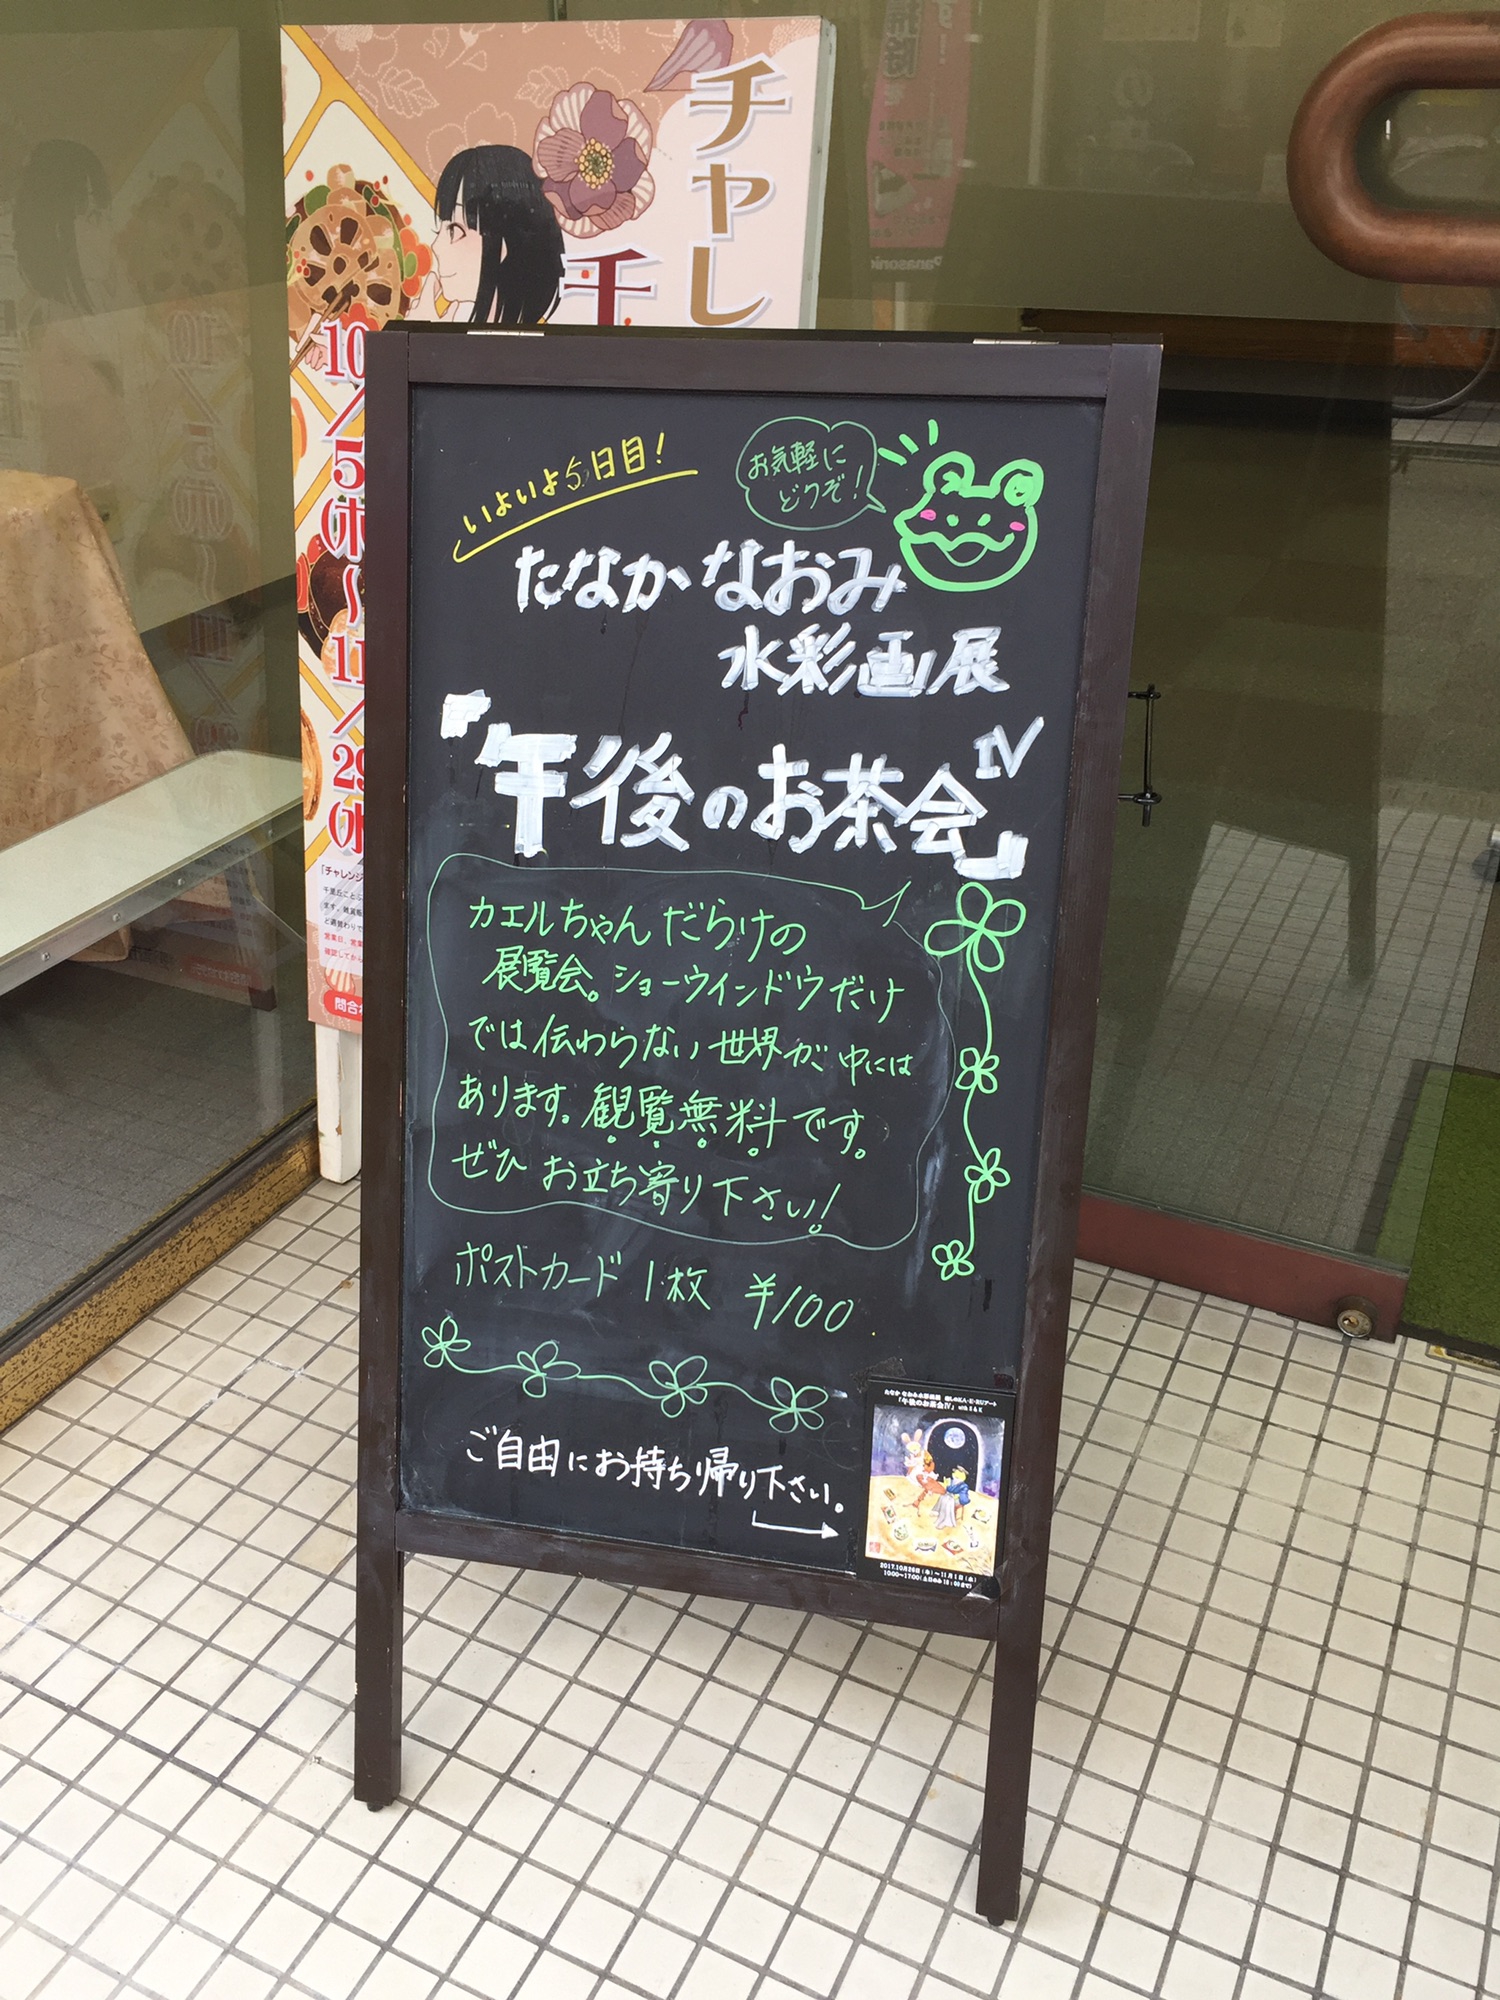 チャレ
千
10/5(木)〜11/29(水
「チャレンジ
問合わ
Panasonic
いよいよ5日目!
お気軽に
どうぞ!
たなか なおみ
水彩画展
『午後のお茶会IV』
カエルちゃんだらけの
展覧会。ショーウインドウだけ
では伝わらない世界が中には
あります。観覧無料です。
ぜひ お立ち寄り下さい!
ポストカード 1枚 ¥100
ご自由にお持ち帰り下さい。
「午後のお茶会IV」